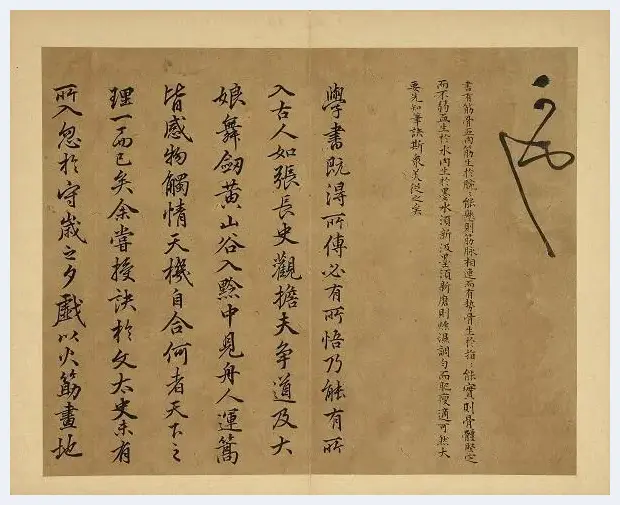 書有筋骨血肉筋生於腕〻能懸則筋脉相連而有勢骨生於指〻能實則骨體堅定
而不弱血生於水肉生於墨水須新汲墨須新磨則燥濕調勻而肥瘦適可然大
要先知筆訣斯衆美從之矣
學書既得所傳必有所悟乃能有所
入古人如張長史觀擔夫爭道及大
娘舞劒黄山谷入黔中見舟人運篙
皆感物觸情天機自合何者天下之
理一而已矣余嘗授訣於文太史未有
所入忽於守歲之夕戲以火筯畫地